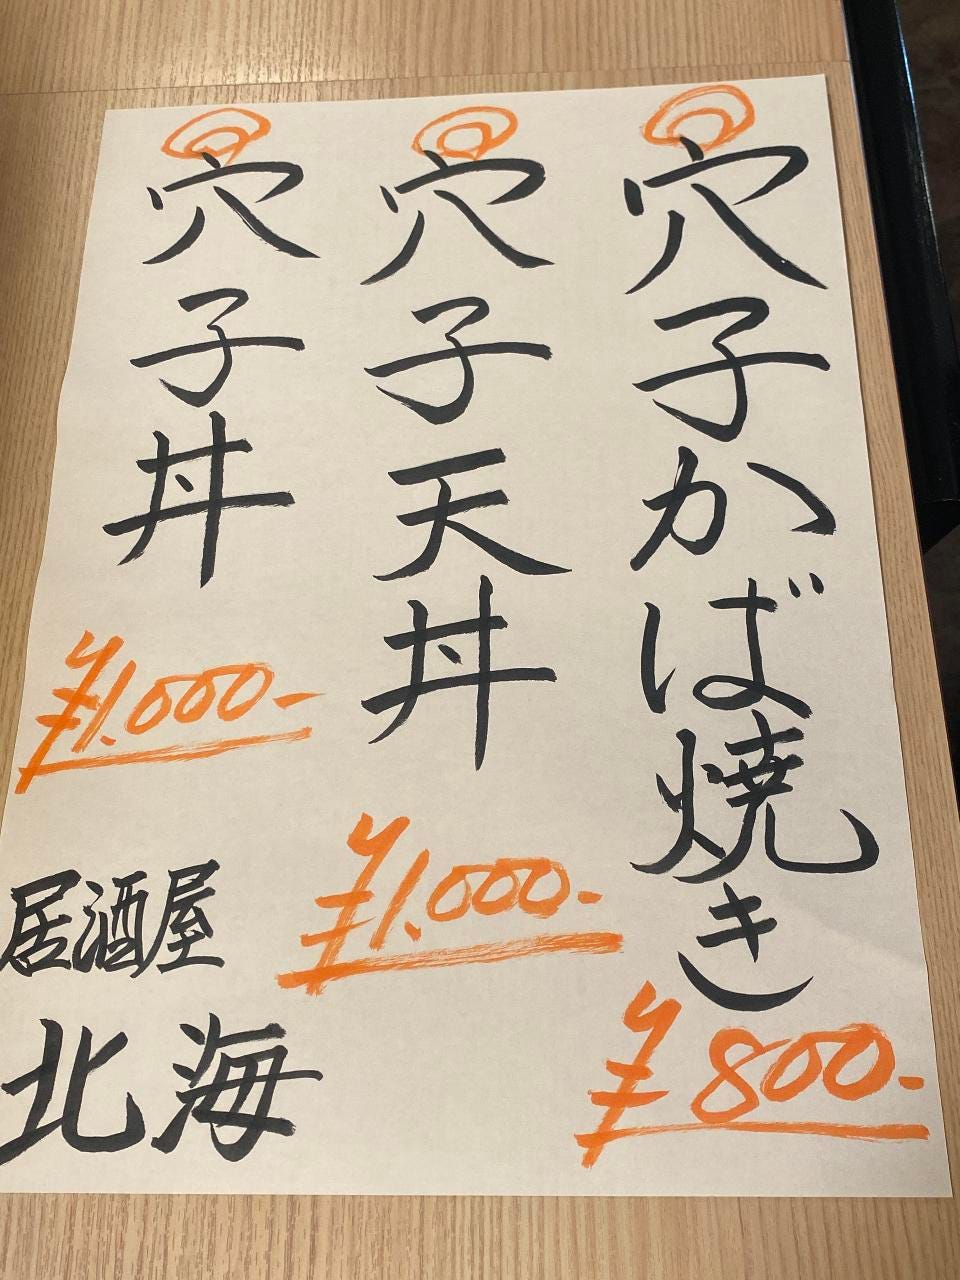 穴子かば焼き
¥800-
穴子天丼
¥1.000-
穴子丼
¥1.000-
居酒屋
北海